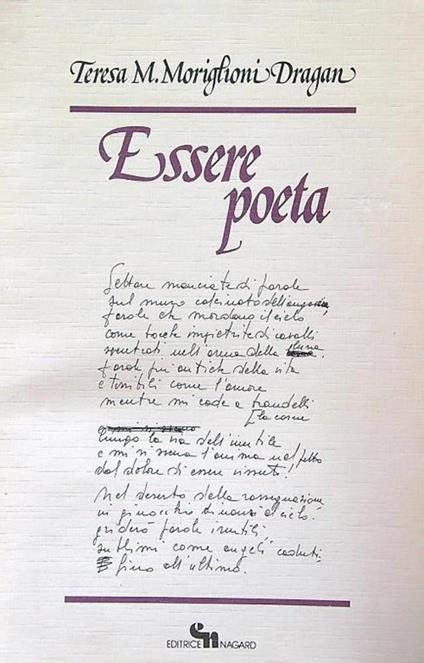 Teresa M. Moriglioni Dragan
Essere
poeta
Gettare manciate di parole
sul muro calcinato dell'angoscia,
parole che mordano il cielo
come bocche impietrite di cavalli
sventrati nell'arena della luna.
Parole più antiche della vita
e terribili come l'amore
mentre mi cade a brandelli
la carne
lungo la via dell'inutile
e mi si the l'anima nel petto
dal dolore di essere vissuti!
Nel deserto della rassegnazione
in ginocchio dinanzi al cielo
griderò parole inutili,
sublimi come angeli caduti,
fino all'ultimo.
EDITRICE NAGARD